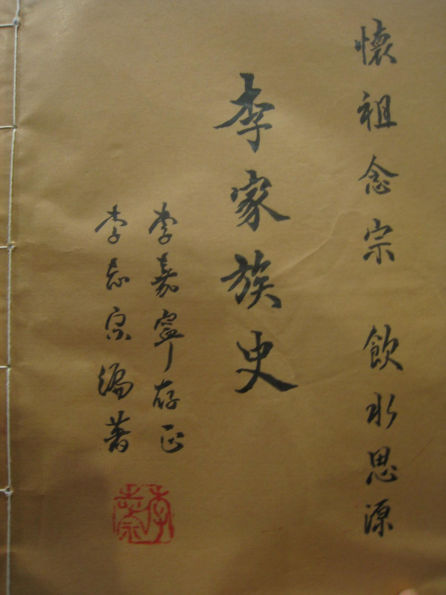 懷祖念宗 飲水思源
李家族史
李嘉寧存正
李志宗編著
李志宗